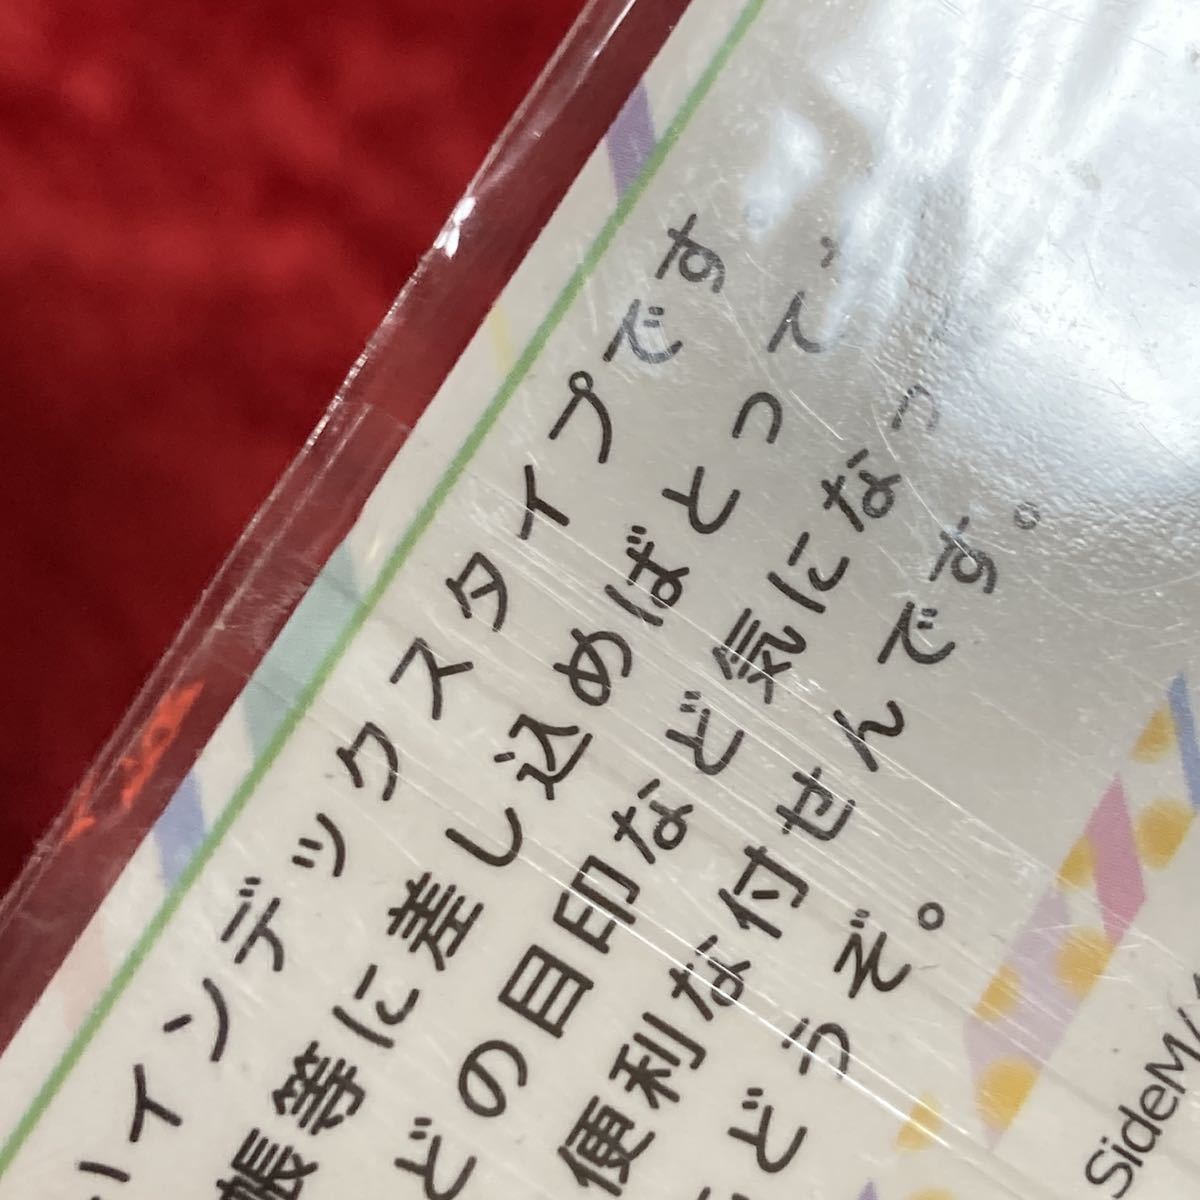 インデックスタイプです
帳等に差し込めばとって
どの目印など気になっ
便利な付せんです。
どうぞ。
SideM/